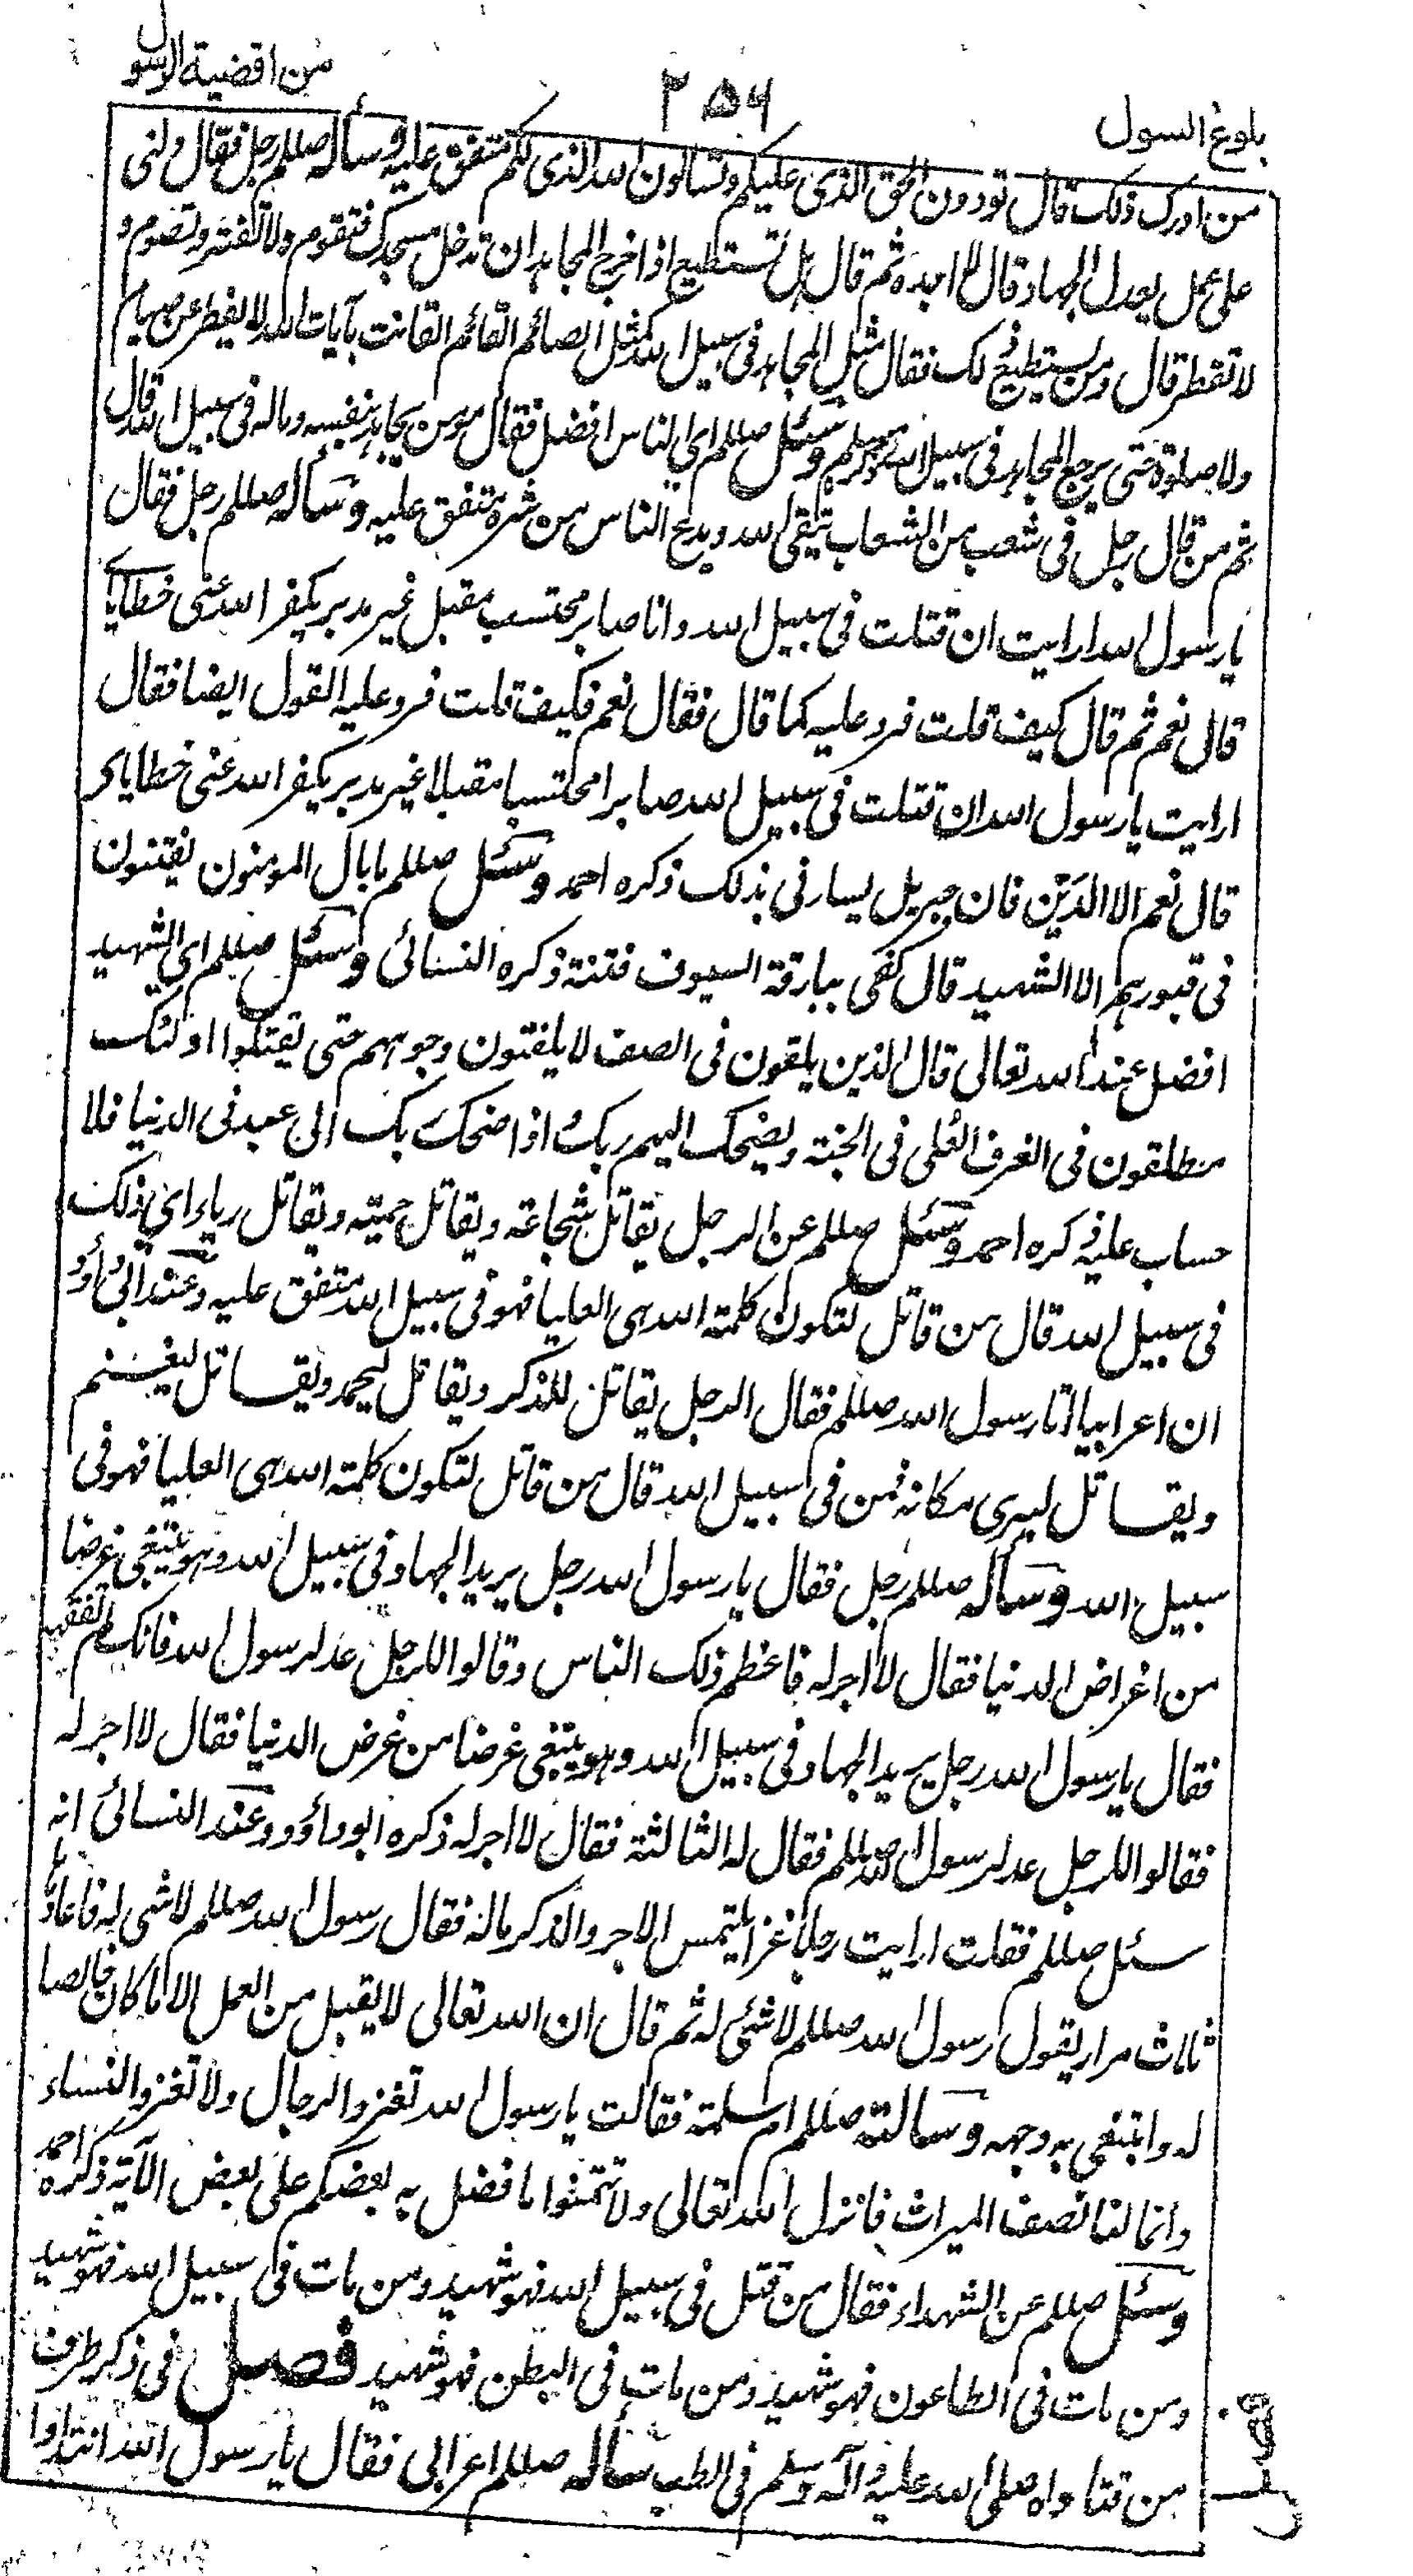 بلوغ السول
٢٥٦
من اقضية الرسول
من ادرك ذلك قال تودون الحق الذى عليكم وتسالون الله الذى لكم متفق عليه وسأله صللم رجل فقال دلنى
على عمل يعدل الجهاد قال لا اجده ثم قال هل تستطيع اذا خرج المجاهد ان تدخل مسجدك فتقوم ولا تفتر وتصوم و
لا تفطر قال ومن يستطيع ذلك فقال مثل المجاهد فى سبيل الله كمثل الصائم القائم القانت بآيات الله لا يفطر عن صيام
ولا صلوة حتى يرجع المجاهد فى سبيل الله وسئل صللم اى الناس افضل فقال مومن يجاهد بنفسه وماله فى سبيل الله قال
ثم من قال رجل فى شعب من الشعاب يتقى الله ويدع الناس من شره متفق عليه وسأله صللم رجل فقال
يا رسول الله ارايت ان قتلت فى سبيل الله وانا صابر محتسب مقبل غير مدبر يكفر الله عنى خطاياى
قال نعم ثم قال كيف قلت فرد عليه كما قال فقال نعم فكيف قلت فرد عليه القول ايضا فقال
ارايت يا رسول الله ان قتلت فى سبيل الله صابرا محتسبا مقبلا غير مدبر يكفر الله عنى خطاياى
قال نعم الا الدَيْن فان جبريل يسارنى بذلك ذكره احمد وسئل صللم ما بال المومنون يفتنون
فى قبورهم الا الشهيد قال كفى ببارقة السيوف فتنة ذكره النسائى وسئل صللم اى الشهيد
افضل عند الله تعالى قال الذين يلقون فى الصف لا يلفتون وجوههم حتى يقتلوا اولئك
منطلقون فى الغرف العُلى فى الجنة ويضحك اليهم ربك واذا ضحك ربك الى عبد فى الدنيا فلا
حساب عليه ذكره احمد وسئل صللم عن الرجل يقاتل شجاعة ويقاتل حمية ويقاتل رياء اى ذلك
فى سبيل الله قال من قاتل لتكون كلمة الله هى العليا فهو فى سبيل الله متفق عليه وعند ابى داؤد
ان اعرابيا اتا رسول الله صللم فقال الرجل يقاتل للذكر ويقاتل ليحمد ويقاتل ليغنم
ويقاتل ليرى مكانه فمن فى سبيل الله قال من قاتل لتكون كلمة الله هى العليا فهو فى
سبيل الله وسأله صللم رجل فقال يا رسول الله رجل يريد الجهاد فى سبيل الله وهو يبتغى عرضا
من اعراض الدنيا فقال لا اجر له فاعظم ذلك الناس وقالوا للرجل عد لرسول الله فانك لم تفقهه
فقال يا رسول الله رجل يريد الجهاد فى سبيل الله وهو يبتغى عرضا من عرض الدنيا فقال لا اجر له
فقالوا للرجل عد لرسول الله صللم فقال له الثالثة فقال لا اجر له ذكره ابوداؤد وعند النسائى انه
سئل صللم فقلت ارايت رجلا غزا يلتمس الاجر والذكر ماله فقال رسول الله صللم لا شى له فاعادها
ثلاث مرار يقول رسول الله صللم لا شئ له ثم قال ان الله تعالى لا يقبل من العمل الا ما كان خالصا
له وابتغى به وجهه وسالته صللم ام سلمة فقالت يا رسول الله تغزو الرجال ولا تغزو النساء
وانما لنا نصف الميراث فانزل الله تعالى ولا تتمنوا ما فضل به بعضكم على بعض الآية ذكره احمد
وسئل صللم عن الشهداء فقال من قتل فى سبيل الله فهو شهيد ومن مات فى سبيل الله فهو شهيد
ومن مات فى الطاعون فهو شهيد ومن مات فى البطن فهو شهيد فصل فى ذكر طرف
من فتاواه صلى الله عليه وآله وسلم فى الطب سأله صللم اعرابى فقال يا رسول الله انتداوا